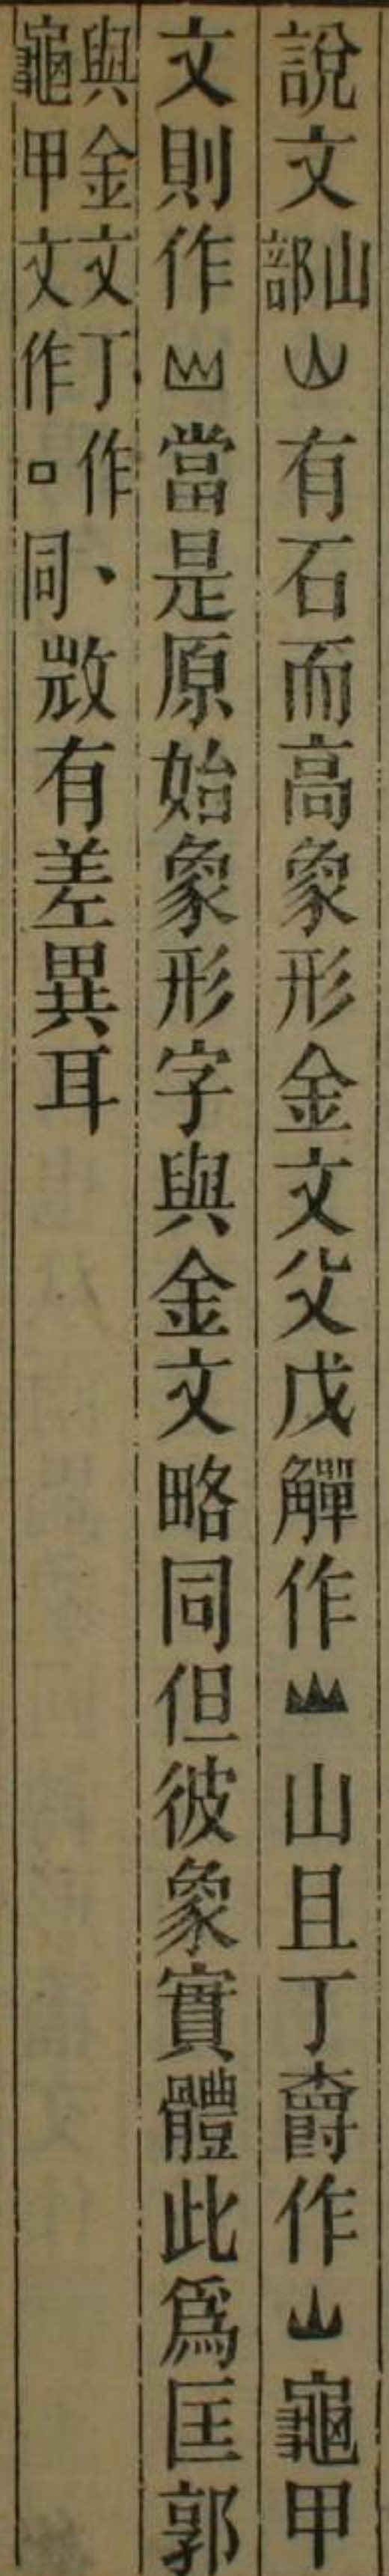 說文山部山有石而高象形金文父戊觶作山山且丁爵作山龜甲
文則作山當是原始象形字與金文略同但彼象實體此爲匡郭
與金文丁作、龜甲文作口同㪚有差異耳